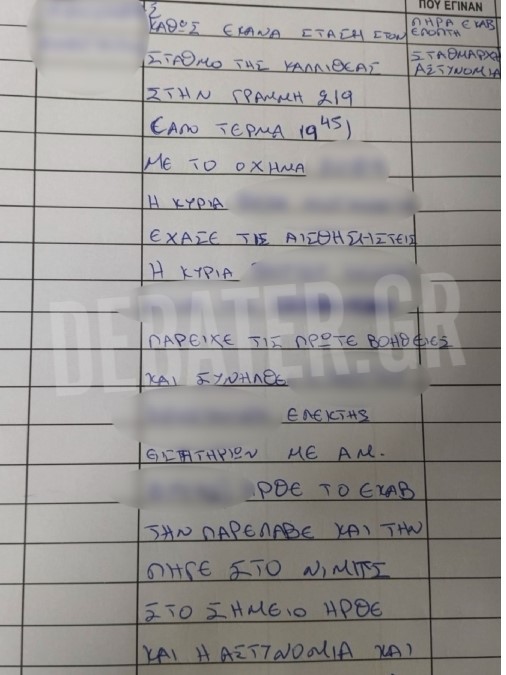 ΠΟΥ ΕΓΙΝΑΝ
ΚΑΘΩΣ ΕΚΑΝΑ ΣΤΑΣΗ ΣΤΟΝ
ΠΗΡΑ ΕΚΑΒ
ΕΠΟΠΤΗ
ΣΤΑΘΜΟ ΤΗΣ ΚΑΛΛΙΘΕΑΣ
ΣΤΑΘΜΑΡΧΗ
ΑΣΤΥΝΟΜΙΑ
ΣΤΗΝ ΓΡΑΜΜΗ 219
(ΑΠΟ ΤΕΡΜΑ 19 45)
ΜΕ ΤΟ ΟΧΗΜΑ
Η ΚΥΡΙΑ
ΕΧΑΣΕ ΤΙΣ
Η ΚΥΡΙΑ
ΠΑΡΕΙΧΕ ΤΙΣ ΠΡΩΤΕ ΒΟΗΘΕΙΕΣ
ΚΑΙ ΣΥΝΗΛΘΕ
ΕΛΕΚΤΗΣ
ΕΙΣΗΤΗΡΙΩΝ ΜΕ ΑΜ.
ΡΘΕ ΤΟ ΕΚΑΒ
ΤΗΝ ΠΑΡΕΛΑΒΕ ΚΑΙ ΤΗΝ
ΠΗΓΕ ΣΤΟ ΝΙΜΙΤΣ
ΣΤΟ ΣΗΜΕΙΟ ΗΡΘΕ
ΚΑΙ Η ΑΣΤΥΝΟΜΙΑ ΚΑΙ
DEBATER.GR